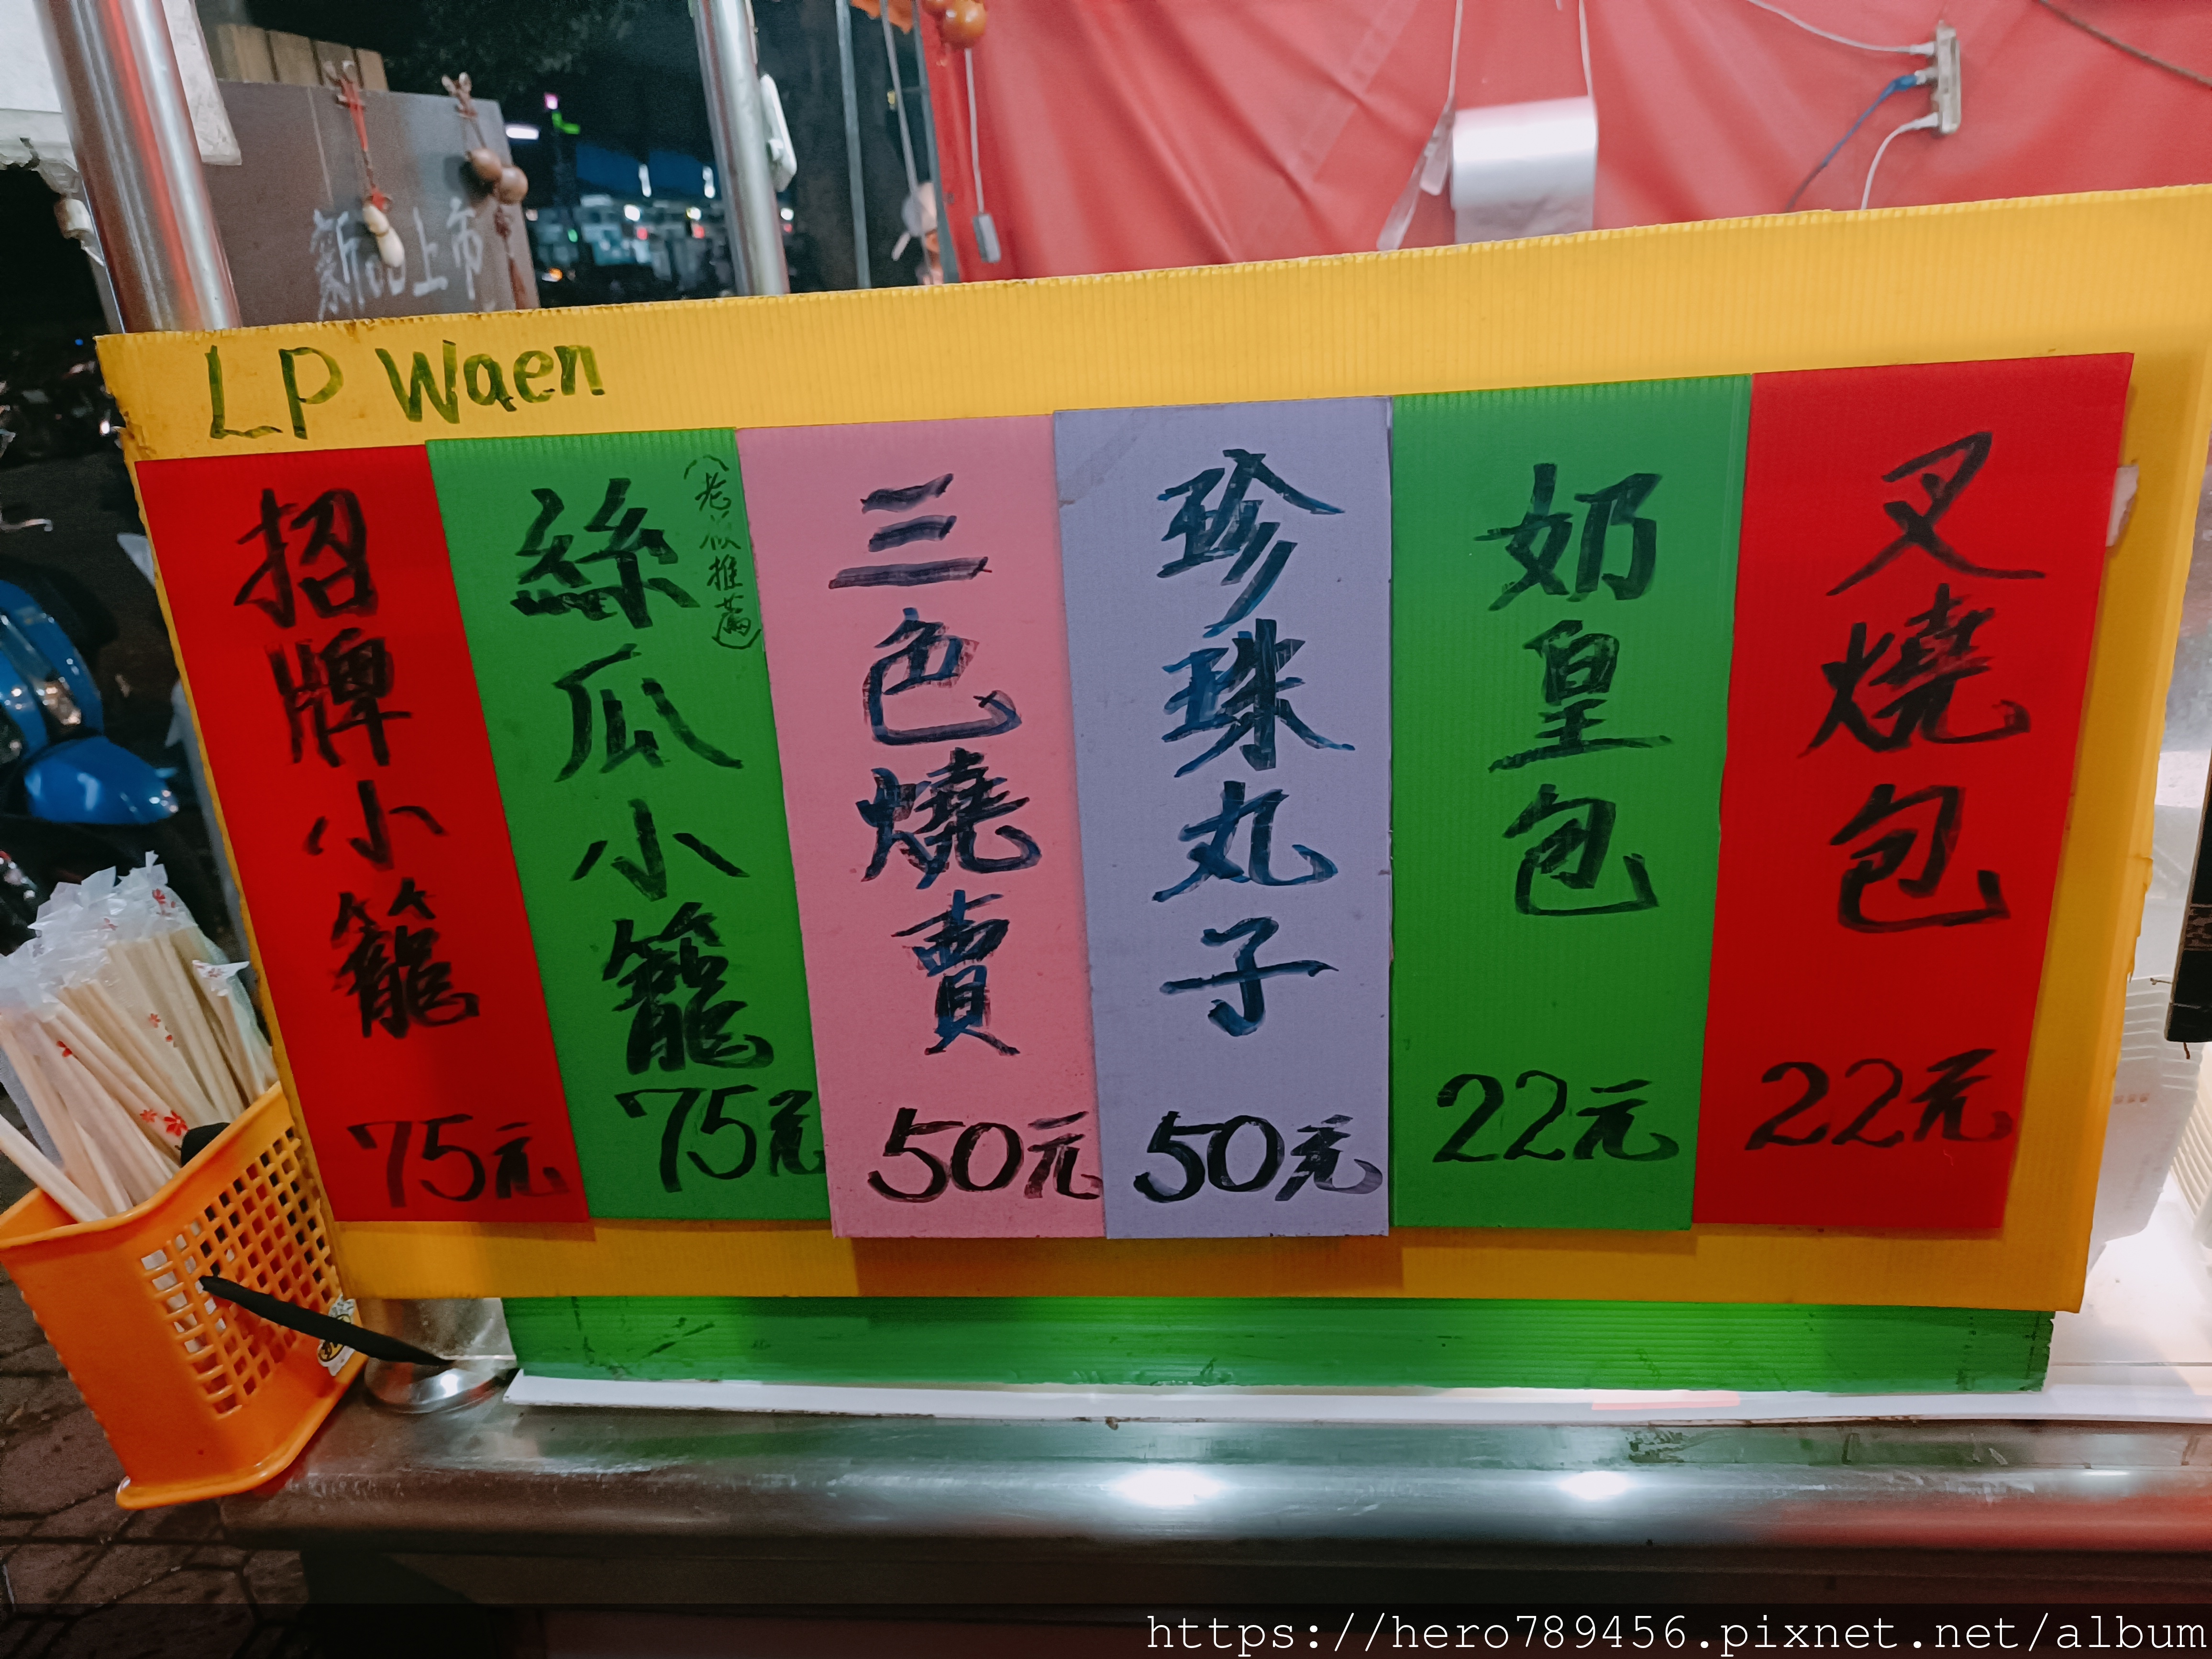 新品上市
LP Waen
招牌小籠
75元
絲瓜小籠
75元
(老爸推薦)
三色燒賣
50元
珍珠丸子
50元
奶皇包
22元
叉燒包
22元
https://hero789456.pixnet.net/album